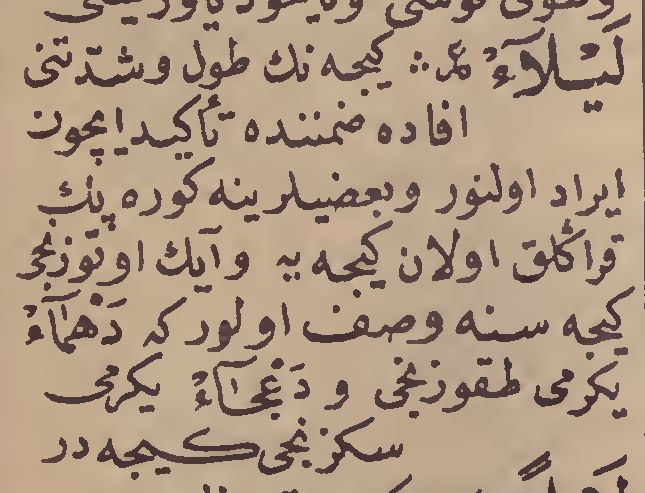 لَيْلَآءُ عر :: كيجه نك طول وشدّتنى
افاده ضمننده تأكيد ايچون
ايراد اولنور وبعضيلرينه كوره پك
قراڭلق اولان كيجه يه و آيك اوتوزنجى
كيجه سنه وصف اولور كه دَهْمَآءُ
يكرمى طقوزنجى و دَعْجَآءُ يكرمى
سكزنجى كيجه در